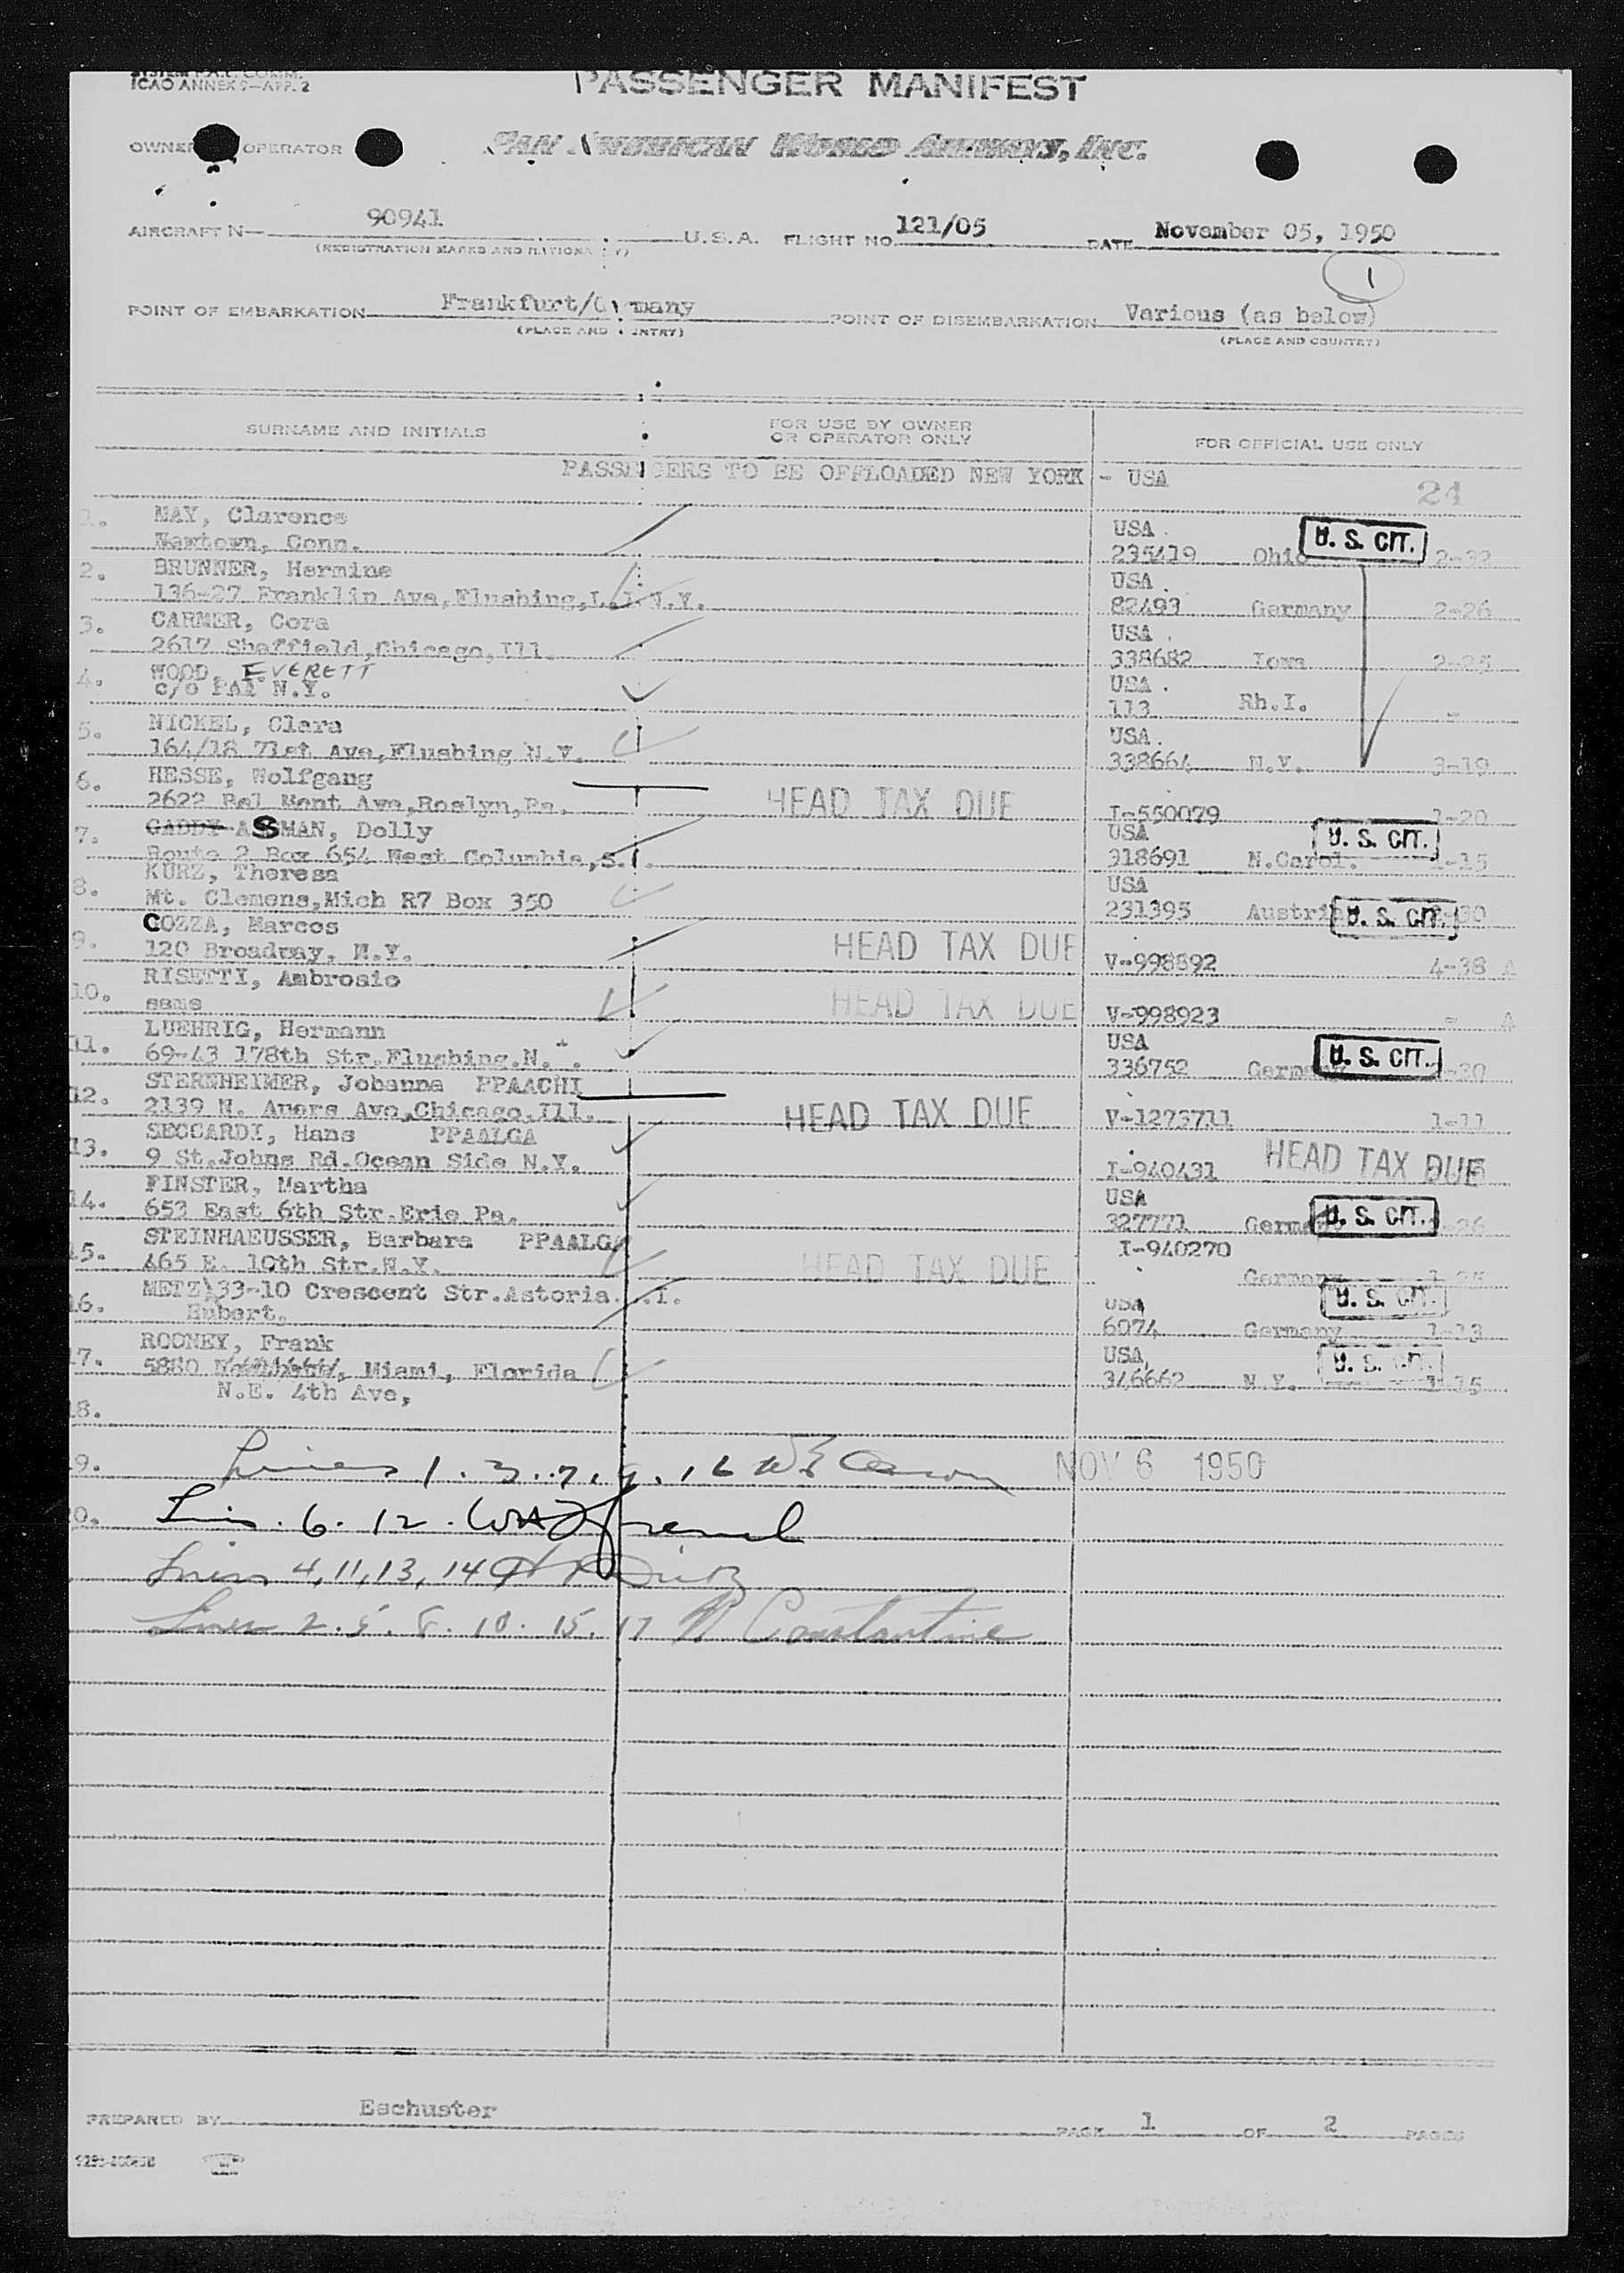 SYSTEM P.A.C. COMM.
ICAO ANNEX 9—APP. 2
PASSENGER MANIFEST
OWNER OPERATOR PAN AMERICAN WORLD AIRWAYS, INC.
AIRCRAFT N— 90941 U.S.A. FLIGHT NO. 121/05 DATE November 05, 1950
(REGISTRATION MARKS AND NATIONALITY)
1
POINT OF EMBARKATION Frankfurt/G many POINT OF DISEMBARKATION Various (as below)
(PLACE AND COUNTRY) (PLACE AND COUNTRY)
SURNAME AND INITIALS FOR USE BY OWNER OR OPERATOR ONLY FOR OFFICIAL USE ONLY
PASSENGERS TO BE OFFLOADED NEW YORK - USA
24
1. MAY, Clarence USA
Newtown, Conn. 235419 Ohio U. S. CIT. 2-32
2. BRUNNER, Hermine USA
136-27 Franklin Ave, Flushing, L.I. N.Y. 82493 Germany 2-26
3. CARMER, Cora USA
2617 Sheffield, Chicago, Ill. 338682 Iowa 2-25
4. WOOD, EVERETT USA
c/o PAA N.Y. 113 Rh.I. -
5. NICKEL, Clara USA
164/18 71st Ave, Flushing N.Y. 338664 N.Y. 3-19
6. HESSE, Wolfgang
2622 Bel Mont Ave, Roslyn, Pa. HEAD TAX DUE I-550079 1-20
7. GADDY ASMAN, Dolly USA
Route 2 Box 654 West Columbia, S. 318691 N.Carol. U. S. CIT. -15
8. KURZ, Theresa USA
Mt. Clemens, Mich R7 Box 350 231395 Austria U. S. CIT. 30
9. COZZA, Marcos
120 Broadway, N.Y. HEAD TAX DUE V-998892 4-38 A
10. RISETTI, Ambrosio
same HEAD TAX DUE V-998923 - A
11. LUEHRIG, Hermann USA
69-43 178th Str. Flushing. N. . 336752 Germany U. S. CIT. -30
12. STERNHEIMER, Johanna PPAACHI
2139 N. Avers Ave, Chicago, Ill. HEAD TAX DUE V-1273711 1-11
13. SECCARDI, Hans PPAALGA
9 St. Johns Rd. Ocean Side N.Y. I-940431 HEAD TAX DUE
14. FINSTER, Martha USA
653 East 6th Str. Erie Pa. 327771 Germany U. S. CIT. -26
15. STEINHAEUSSER, Barbara PPAALGA I-940270
465 E. 10th Str. N.Y. HEAD TAX DUE Germany 1-25
16. METZ, 33-10 Crescent Str. Astoria. .I. USA
Hubert. 6074 Germany U. S. CIT. 1-13
17. ROONEY, Frank USA,
5880 , Miami, Florida 346662 N.Y. U. S. CIT. -15
N.E. 4th Ave,
18.
19. Lines 1. 3. 7. 9. 16 NOV 6 1950
20. Lin. 6. 12.
Lines 4, 11, 13, 14
Lines 2. 5. 8. 10. 15. 17 Constantine
PREPARED BY Eschuster PAGE 1 OF 2 PAGES